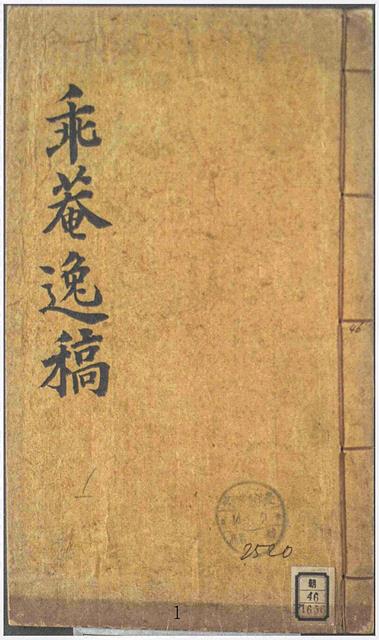 乖菴逸稿
46
2520
朝
46
1656
1